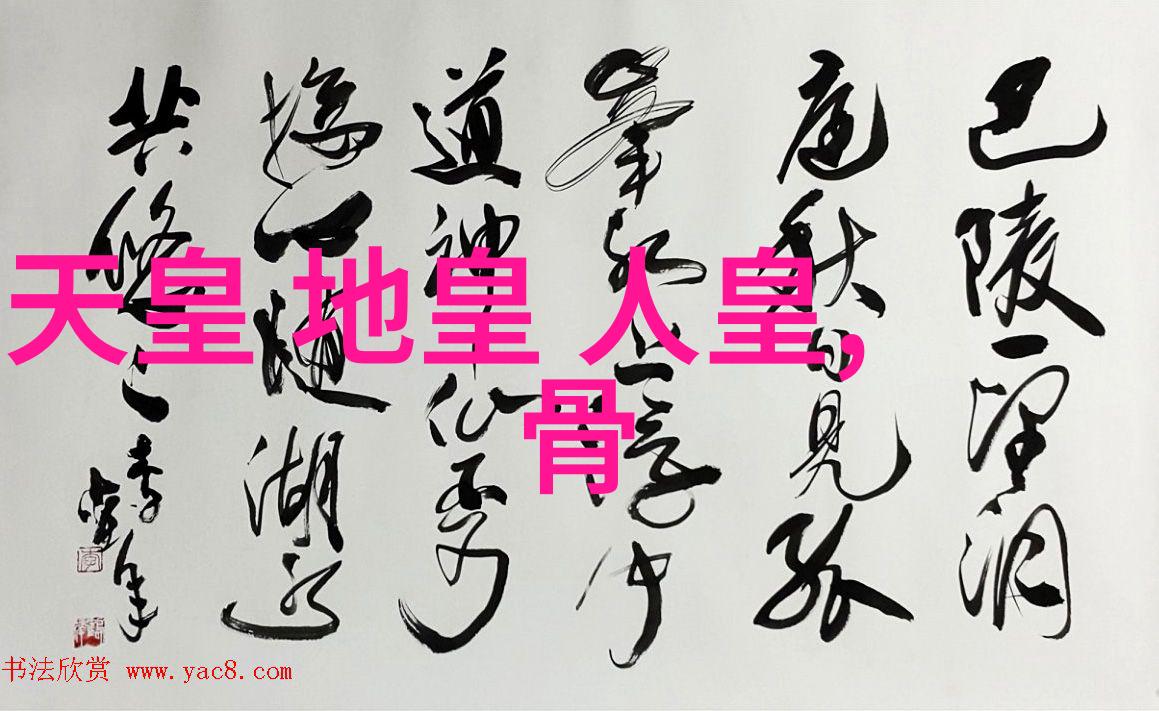 天皇 地皇 人皇,
骨
巴陵一望洞
庭秋日见孤
峯水上浮闻
道神仙不可
接心随湖水
共悠悠
书法欣赏 www.yac8.com